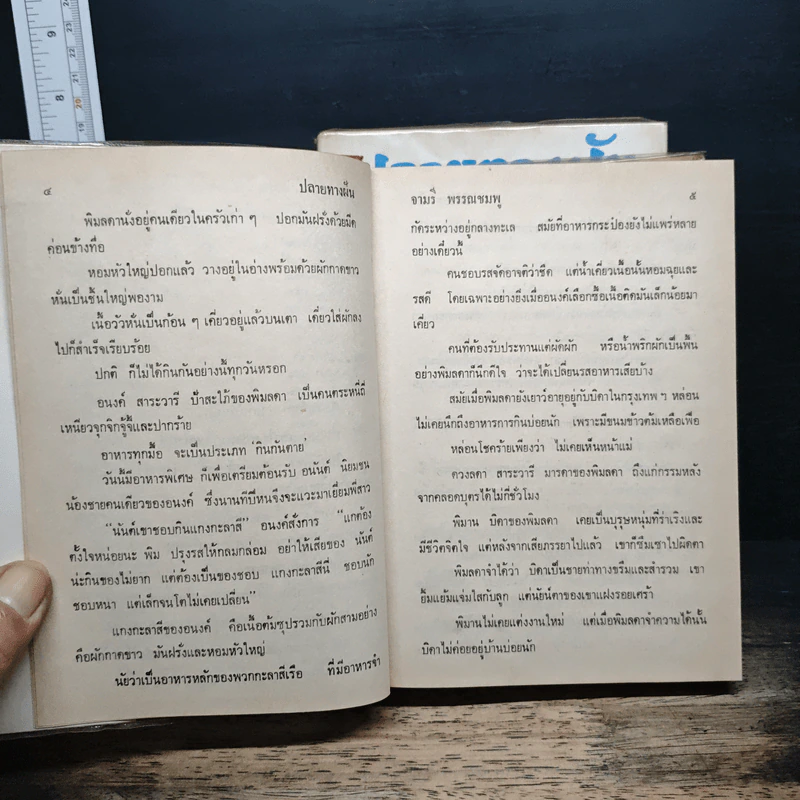 9
8
20
๔ ปลายทางฝัน
พิมลดานั่งอยู่คนเดียวในครัวเก่า ๆ ปอกมันฝรั่งด้วยมีด
ค่อนข้างทื่อ
หอมหัวใหญ่ปอกแล้ว วางอยู่ในอ่างพร้อมด้วยผักกาดขาว
หั่นเป็นชิ้นใหญ่พองาม
เนื้อวัวหั่นเป็นก้อน ๆ เคี่ยวอยู่แล้วบนเตา เดี๋ยวใส่ผักลง
ไปก็สำเร็จเรียบร้อย
ปกติ ก็ไม่ได้กินกันอย่างนี้ทุกวันหรอก
อนงค์ สาระวารี ป้าสะใภ้ของพิมลดา เป็นคนตระหนี่ถี่
เหนียวจุกจิกจู้จี้และปากร้าย
อาหารทุกมื้อ จะเป็นประเภท ‘กินกันตาย’
วันนี้มีอาหารพิเศษ ก็เพื่อเตรียมต้อนรับ อนันต์ นิยมชน
น้องชายคนเดียวของอนงค์ ซึ่งนานทีปีหนจึงจะแวะมาเยี่ยมพี่สาว
“นันต์เขาชอบกินแกงกะลาสี” อนงค์สั่งการ “แกต้อง
ตั้งใจหน่อยนะ พิม ปรุงรสให้กลมกล่อม อย่าให้เสียของ นันต์
น่ะกินของไม่ยาก แต่ต้องเป็นของชอบ แกงกะลาสีนี่ ชอบนัก
ชอบหนา แต่เล็กจนโตไม่เคยเปลี่ยน”
แกงกะลาสีของอนงค์ คือเนื้อต้มซุปรวมกับผักสามอย่าง
คือผักกาดขาว มันฝรั่งและหอมหัวใหญ่
นัยว่าเป็นอาหารหลักของพวกกะลาสีเรือ ที่มีอาหารจำ
จามรี พรรณชมพู ๕
กัดระหว่างอยู่กลางทะเล สมัยที่อาหารกระป๋องยังไม่แพร่หลาย
อย่างเดี๋ยวนี้
คนชอบรสจัดอาจติว่าชืด แต่น้ำเคี่ยวเนื้อนั้นหอมฉุยและ
รสดี โดยเฉพาะอย่างยิ่งเมื่ออนงค์เลือกซื้อเนื้อติดมันเล็กน้อยมา
เคี่ยว
คนที่ต้องรับประทานแต่ผัดผัก หรือน้ำพริกผักเป็นพื้น
อย่างพิมลดาก็นึกดีใจ ว่าจะได้เปลี่ยนรสอาหารเสียบ้าง
สมัยเมื่อพิมลดายังเยาว์อายุอยู่กับบิดาในกรุงเทพ ฯ หล่อน
ไม่เคยนึกถึงอาหารการกินบ่อยนัก เพราะมีขนมข้าวต้มเหลือเฟือ
หล่อนโชคร้ายเพียงว่า ไม่เคยเห็นหน้าแม่
ดวงลดา สาระวารี มารดาของพิมลดา ถึงแก่กรรมหลัง
จากคลอดบุตรได้ไม่กี่ชั่วโมง
พิมาน บิดาของพิมลดา เคยเป็นบุรุษหนุ่มที่ร่าเริงและ
มีชีวิตจิตใจ แต่หลังจากเสียภรรยาไปแล้ว เขาก็ซึมเซาไปผิดตา
พิมลดาจำได้ว่า บิดาเป็นชายท่าทางขรึมและสำรวม เขา
ยิ้มแย้มแจ่มใสกับลูก แต่นัยน์ตาของเขาแฝงรอยเศร้า
พิมานไม่เคยแต่งงานใหม่ แต่เมื่อพิมลดาจำความได้นั้น
บิดาไม่ค่อยอยู่บ้านบ่อยนัก